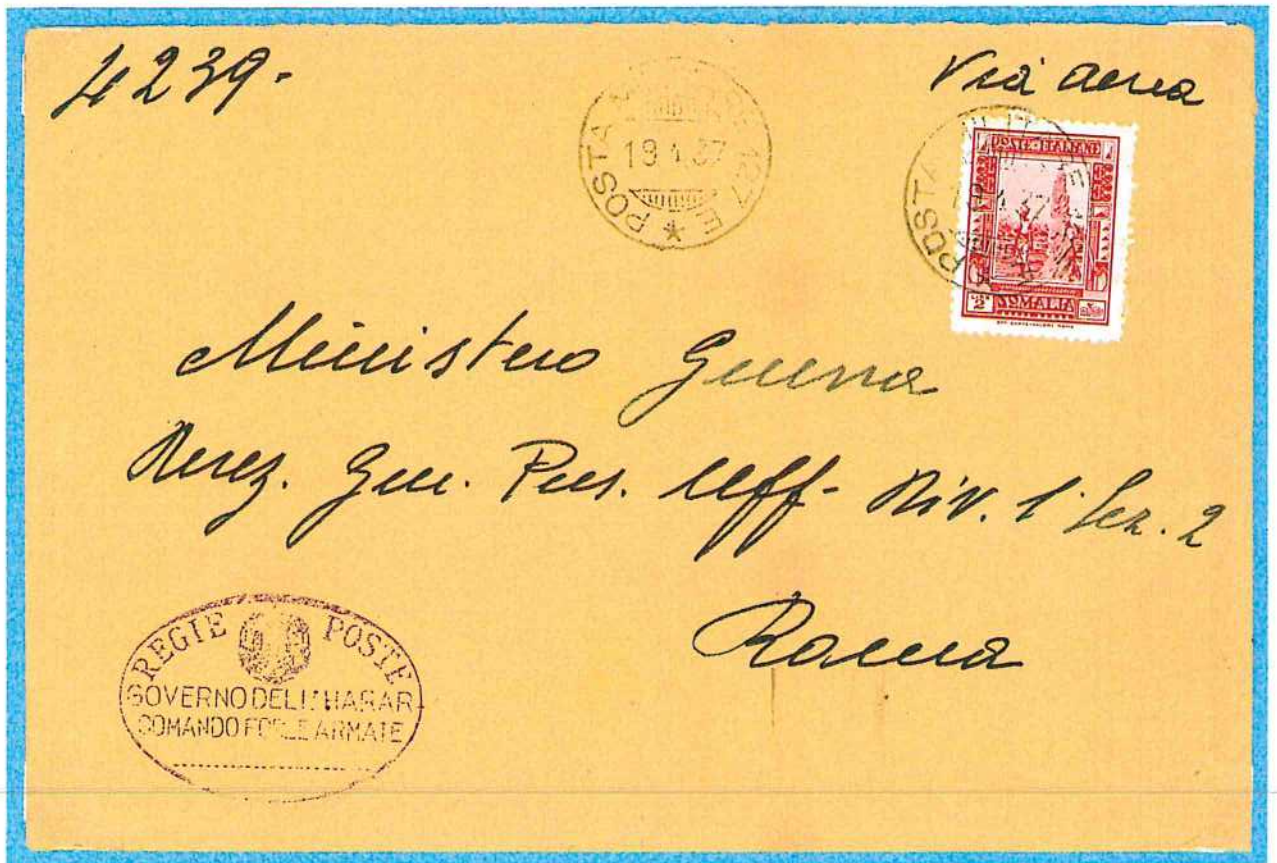 4239.
Via aerea
POSTA MILITARE 127 E
19.4.37
POSTA MILITARE
19.4.37
POSTE·ITALIANE
LIRE 2
SOMALIA
Ministero Guerra
Direz. Gen. Pers. Uff- Div. 1 Sez. 2
Roma
REGIE POSTE
GOVERNO DELL'HARAR
COMANDO FORZE ARMATE